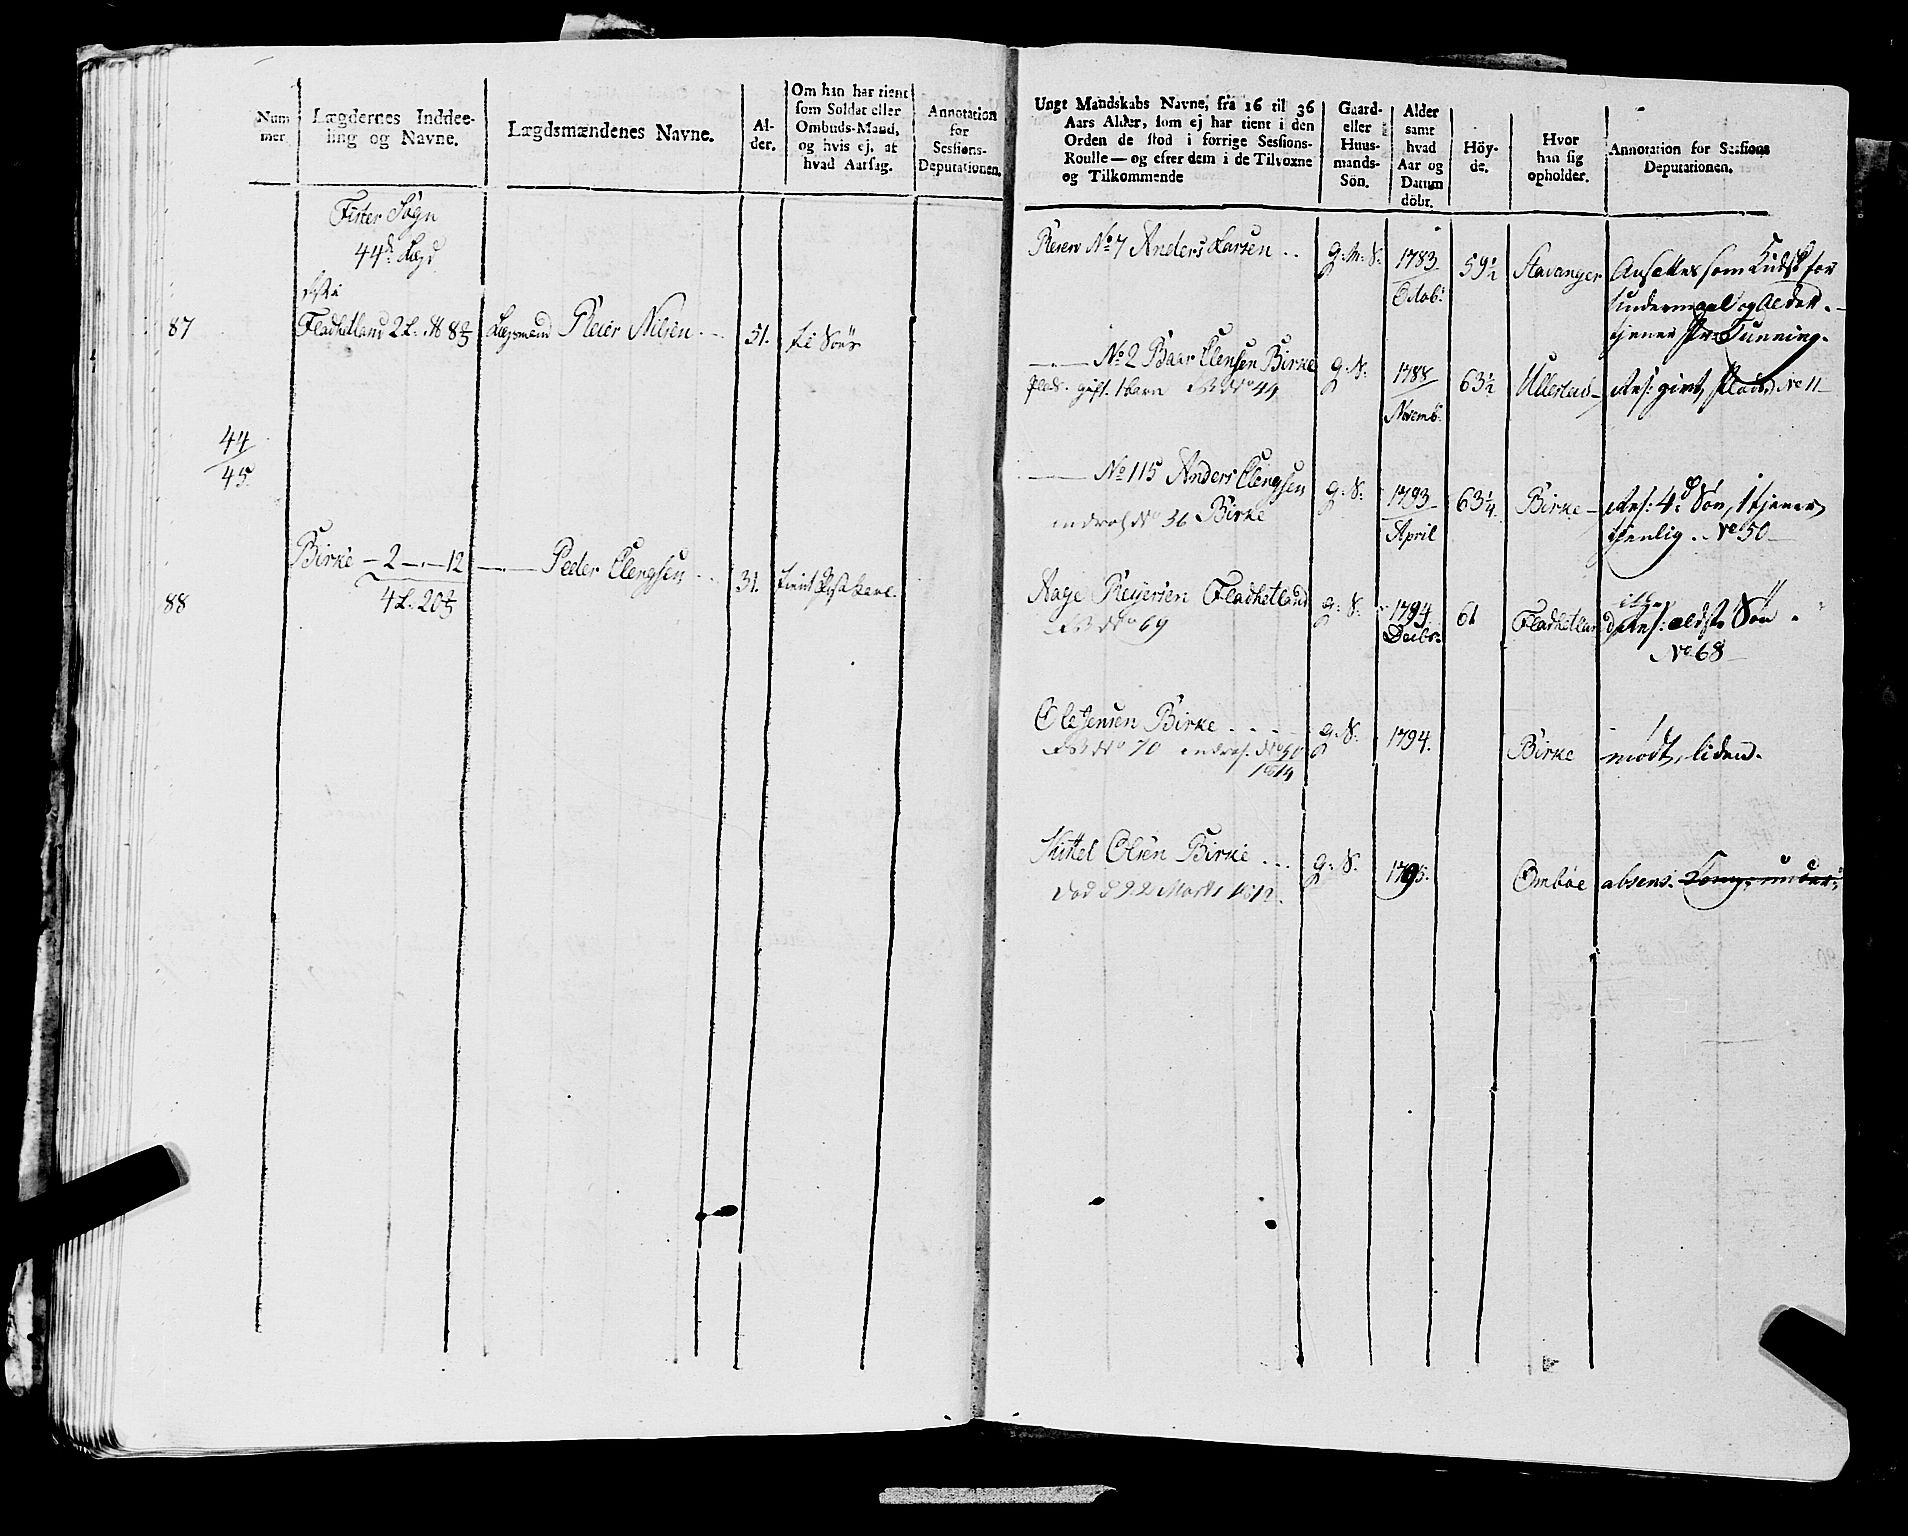 Num
mer
Lægdernes Inddee-
ling og Navne.
Lægdsmændenes Navne.
Al-
der.
Om han har tient
som Soldat eller
Ombuds-Mand,
og hvis ej, af
hvad Aarsag.
Annotation
for
Sessions-
Deputationen.
Fister Sogn
44de Lægd
87
Fladhetland 2 L.
Lægsmand Reier Nilsen
51.
44
45.
88
Birke - 2 - 12
Peder Elengsen
31.
4 L. 20
Ungt Mandskabs Navne, fra 16 til 36
Aars Alder, som ej har tient i den
Orden de stod i forrige Sessions-
Roulle — og efter dem i de Tilvoxne
og Tilkommende
Gaard-
eller
Huus-
mands-
Sön.
Alder
samt
hvad
Aar og
Datum
döbt.
Höy-
de.
Hvor
han sig
opholder.
Annotation for Sessions
Deputationen.
Reserv No 7 Anders Larsen
g. M. S.
1783
Octob:
59½
Stavanger
Ansættes som Kudsk for
undermaal og Alder.
tjener Pr: Tunning.
No 2 Baar Elensen Birke
Plads. gift. 1 barn No 44
g. S.
1788
Novemb.
63½
Ullestad
Res: givt, Plads No 11
No 115 Anders Elengsen
Birke
No 36
g. S.
1793
April
63¼
Birke
Res: 4de Søn, 1 tjener,
tjenlig. No 50
Aage Reyersen Fladhetland
No 69
g. S.
1794
Decbr.
61
Fladhetland
Res: ældste Søn
No 68
Ole Jensen Birke
No 70
1814
g. S.
1794.
Birke
mødt, liden.
Kittel Olsen Birke
død d 22 Marts 1812.
g. S.
1795.
Ombøe
absens.